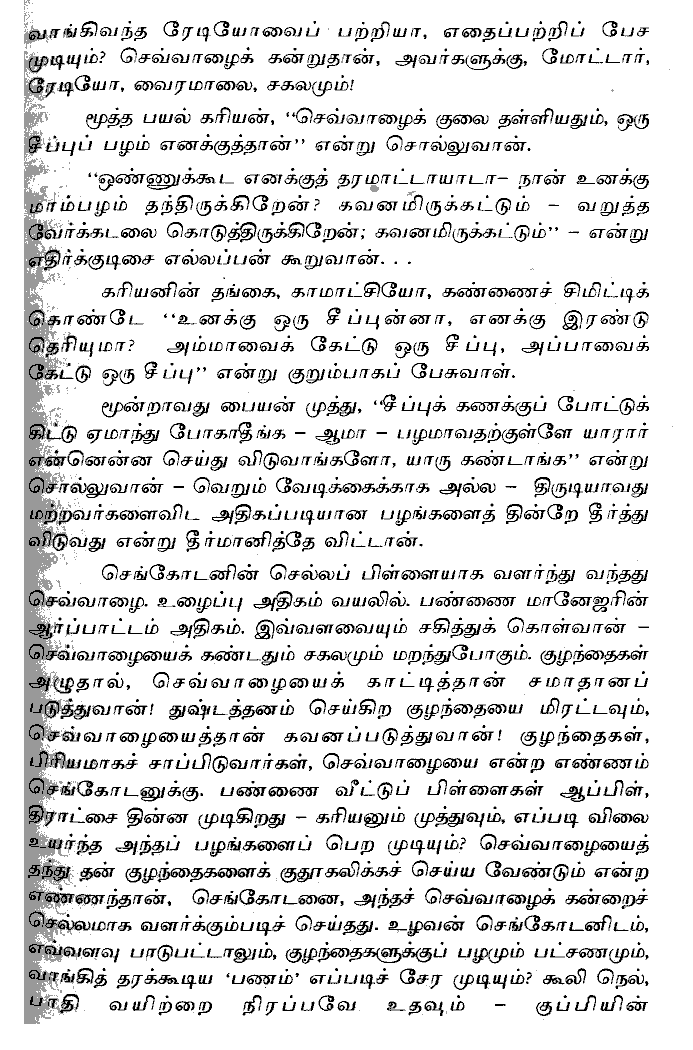 வாங்கிவந்த ரேடியோவைப் பற்றியா, எதைப்பற்றிப் பேச
முடியும்? செவ்வாழைக் கன்றுதான், அவர்களுக்கு, மோட்டார்,
ரேடியோ, வைரமாலை, சகலமும்!
மூத்த பயல் கரியன், “செவ்வாழைக் குலை தள்ளியதும், ஒரு
சீப்புப் பழம் எனக்குத்தான்” என்று சொல்லுவான்.
“ஒண்ணுக்கூட எனக்குத் தரமாட்டாயாடா– நான் உனக்கு
மாம்பழம் தந்திருக்கிறேன்? கவனமிருக்கட்டும் – வறுத்த
வேர்க்கடலை கொடுத்திருக்கிறேன்; கவனமிருக்கட்டும்” – என்று
எதிர்க்குடிசை எல்லப்பன் கூறுவான். . .
கரியனின் தங்கை, காமாட்சியோ, கண்ணைச் சிமிட்டிக்
கொண்டே “உனக்கு ஒரு சீப்புன்னா, எனக்கு இரண்டு
தெரியுமா? அம்மாவைக் கேட்டு ஒரு சீப்பு, அப்பாவைக்
கேட்டு ஒரு சீப்பு” என்று குறும்பாகப் பேசுவாள்.
மூன்றாவது பையன் முத்து, “சீப்புக் கணக்குப் போட்டுக்
கிட்டு ஏமாந்து போகாதீங்க – ஆமா – பழமாவதற்குள்ளே யாரார்
என்னென்ன செய்து விடுவாங்களோ, யாரு கண்டாங்க” என்று
சொல்லுவான் – வெறும் வேடிக்கைக்காக அல்ல – திருடியாவது
மற்றவர்களைவிட அதிகப்படியான பழங்களைத் தின்றே தீர்த்து
விடுவது என்று தீர்மானித்தே விட்டான்.
செங்கோடனின் செல்லப் பிள்ளையாக வளர்ந்து வந்தது
செவ்வாழை. உழைப்பு அதிகம் வயலில். பண்ணை மானேஜரின்
ஆர்ப்பாட்டம் அதிகம். இவ்வளவையும் சகித்துக் கொள்வான் –
செவ்வாழையைக் கண்டதும் சகலமும் மறந்துபோகும். குழந்தைகள்
அழுதால், செவ்வாழையைக் காட்டித்தான் சமாதானப்
படுத்துவான்! துஷ்டத்தனம் செய்கிற குழந்தையை மிரட்டவும்,
செவ்வாழையைத்தான் கவனப்படுத்துவான்! குழந்தைகள்,
பிரியமாகச் சாப்பிடுவார்கள், செவ்வாழையை என்ற எண்ணம்
செங்கோடனுக்கு. பண்ணை வீட்டுப் பிள்ளைகள் ஆப்பிள்,
திராட்சை தின்ன முடிகிறது – கரியனும் முத்துவும், எப்படி விலை
உயர்ந்த அந்தப் பழங்களைப் பெற முடியும்? செவ்வாழையைத்
தந்து தன் குழந்தைகளைக் குதூகலிக்கச் செய்ய வேண்டும் என்ற
எண்ணந்தான், செங்கோடனை, அந்தச் செவ்வாழைக் கன்றைச்
செல்லமாக வளர்க்கும்படிச் செய்தது. உழவன் செங்கோடனிடம்,
எவ்வளவு பாடுபட்டாலும், குழந்தைகளுக்குப் பழமும் பட்சணமும்,
வாங்கித் தரக்கூடிய ‘பணம்’ எப்படிச் சேர முடியும்? கூலி நெல்,
பாதி வயிற்றை நிரப்பவே உதவும் – குப்பியின்